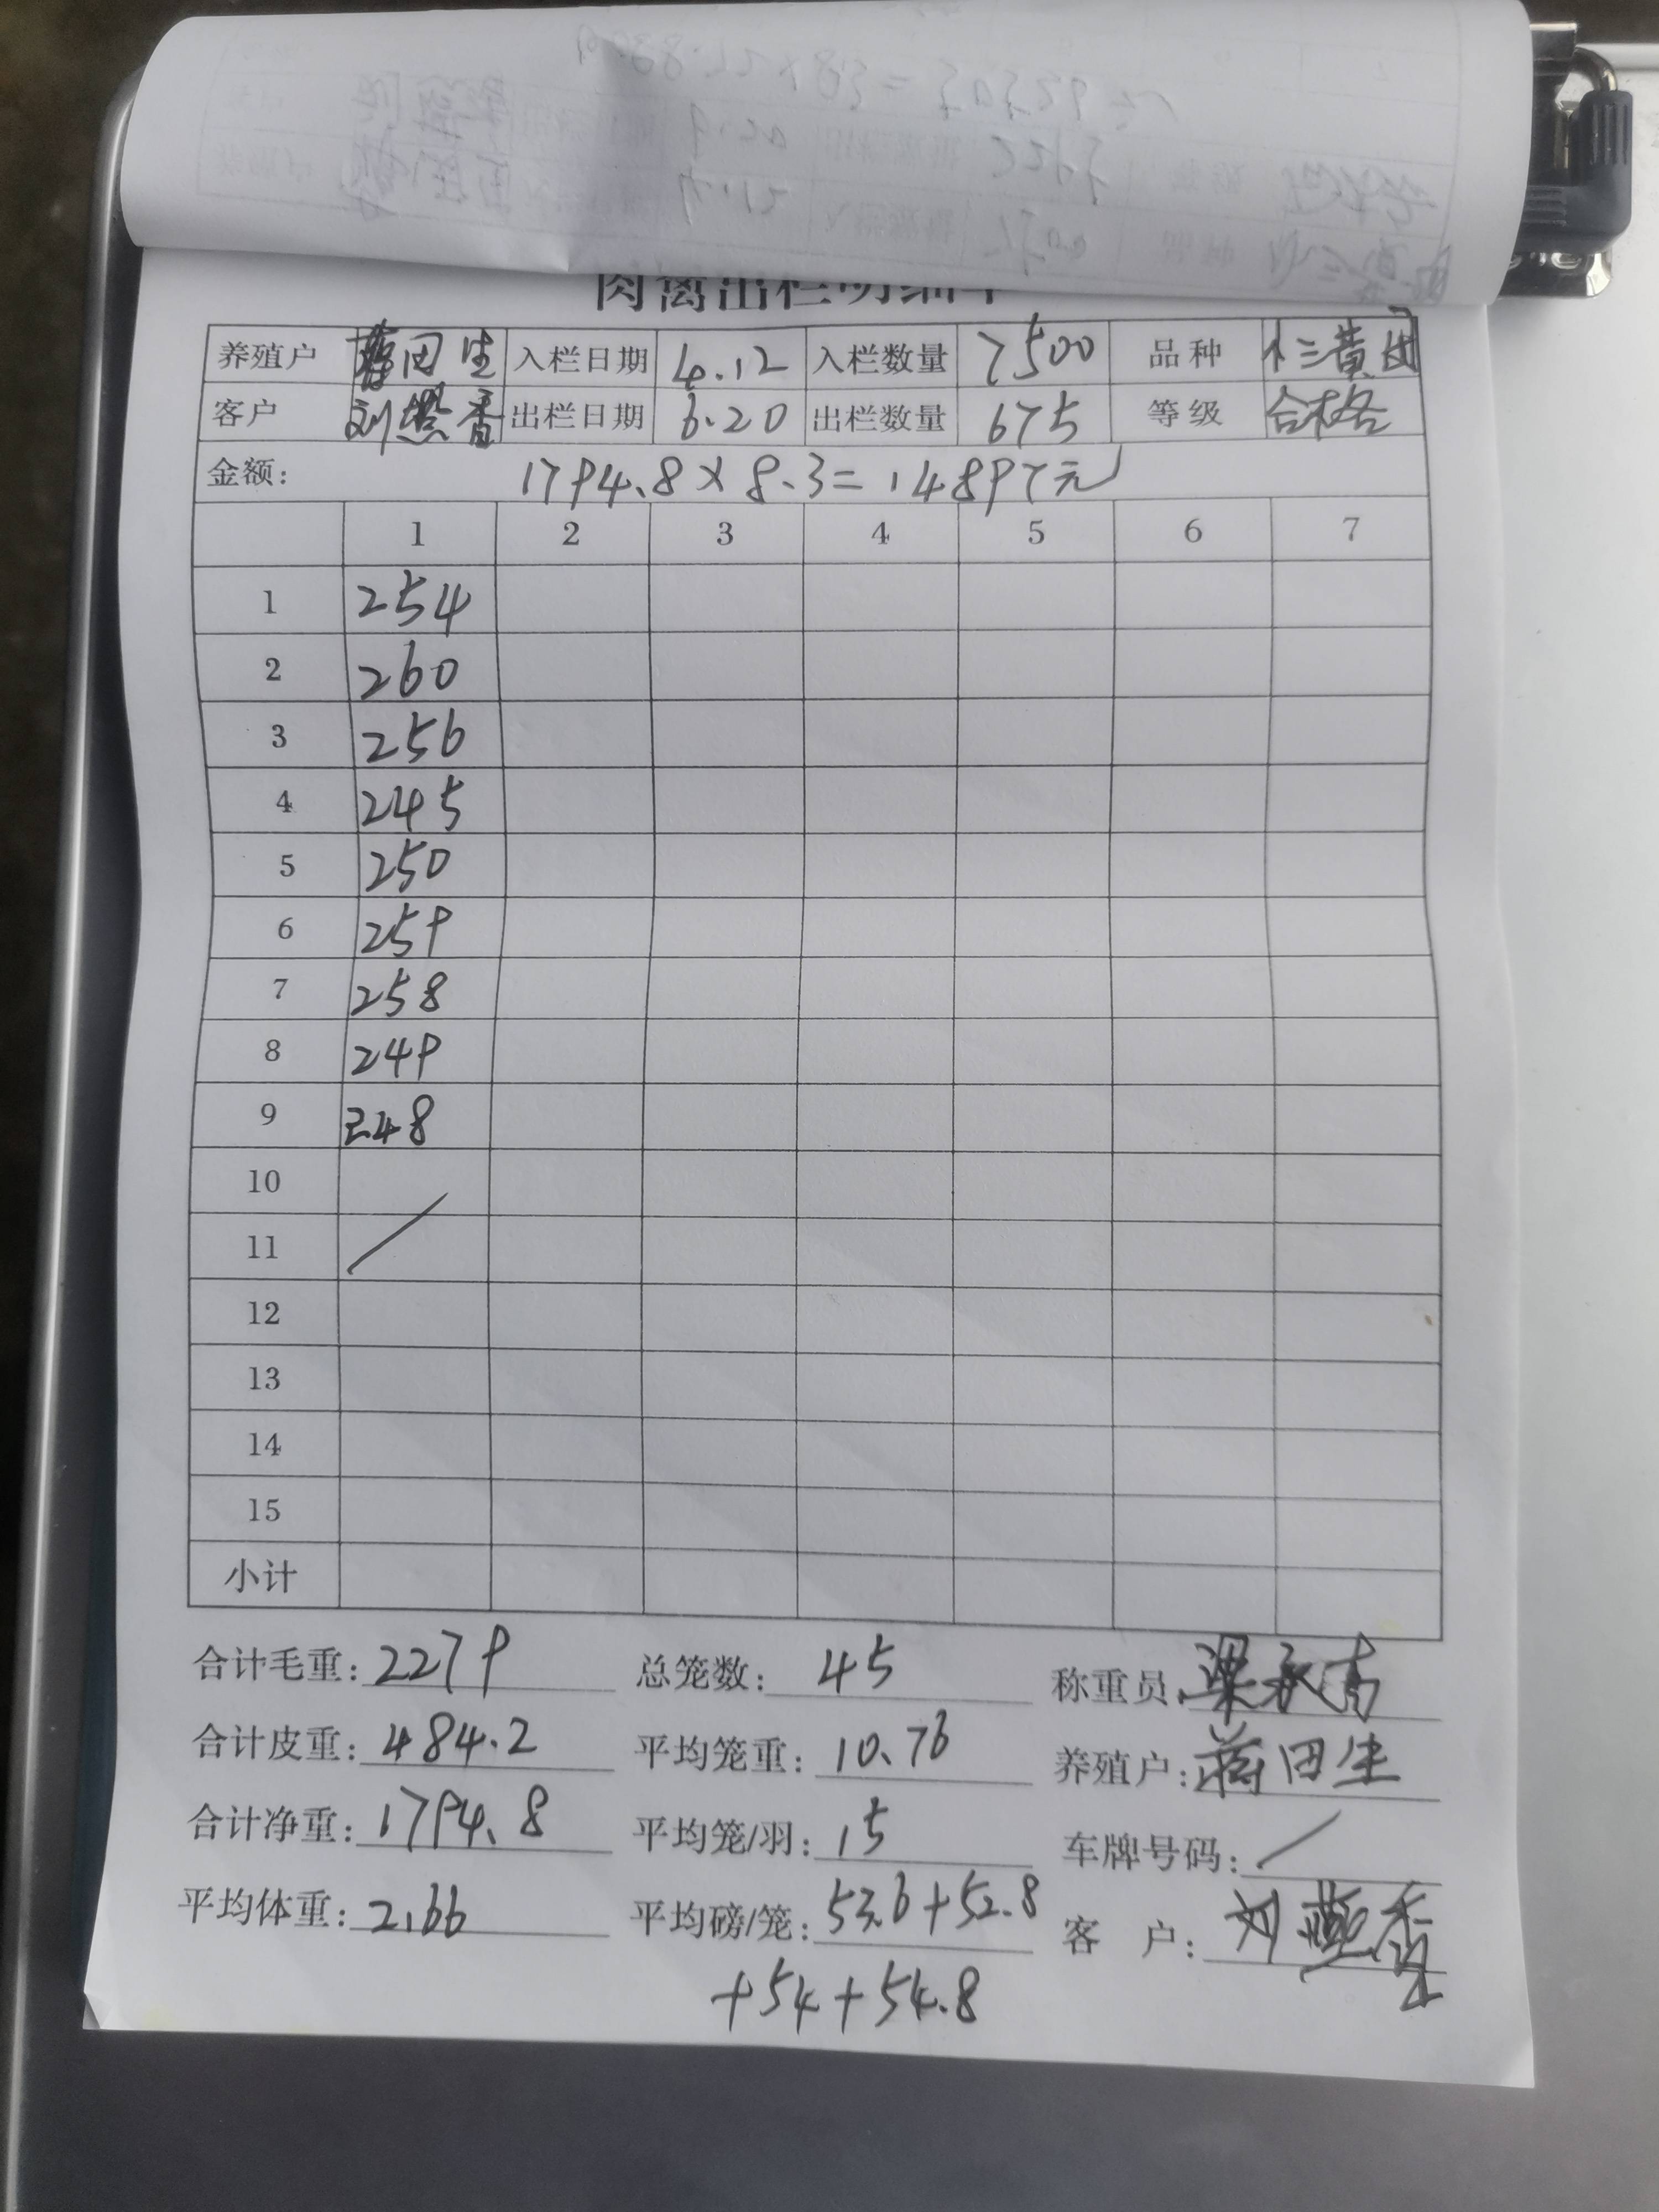 肉禽出栏明细单
养殖户 蒋田生 入栏日期 4.12 入栏数量 7500 品种 仁三黄
客户 刘燕香 出栏日期 6.20 出栏数量 675 等级 合格
金额: 1794.8×8.3=14897元
1 2 3 4 5 6 7
1 254
2 260
3 256
4 245
5 250
6 259
7 258
8 249
9 248
10
11
12
13
14
15
小计
合计毛重: 2279 总笼数: 45 称重员: 梁
合计皮重: 484.2 平均笼重: 10.76 养殖户: 蒋田生
合计净重: 1794.8 平均笼/羽: 15 车牌号码: /
平均体重: 2.66 平均磅/笼: 53.6+52.8 客 户: 刘燕香
+54+54.8